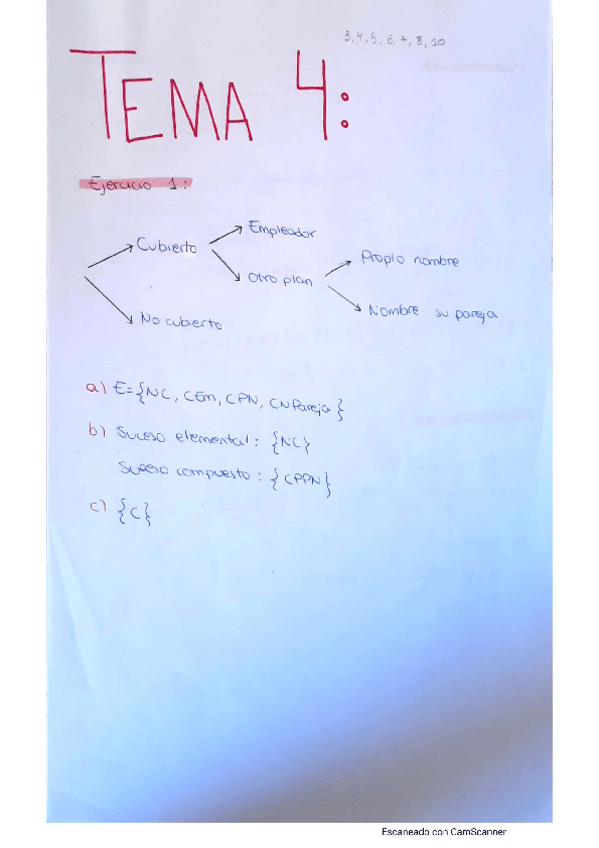 3, 4, 5, 6, 7, 8, 10
TEMA 4:
Ejercicio 1:
Empleador
Cubierto
Propio nombre
Otro plan
Nombre su pareja
No cubierto
a) E={NC, CEm, CPN, CNPareja}
b) Suceso elemental: {NC}
Suceso compuesto: {CPPN}
c) {C}
Escaneado con CamScanner